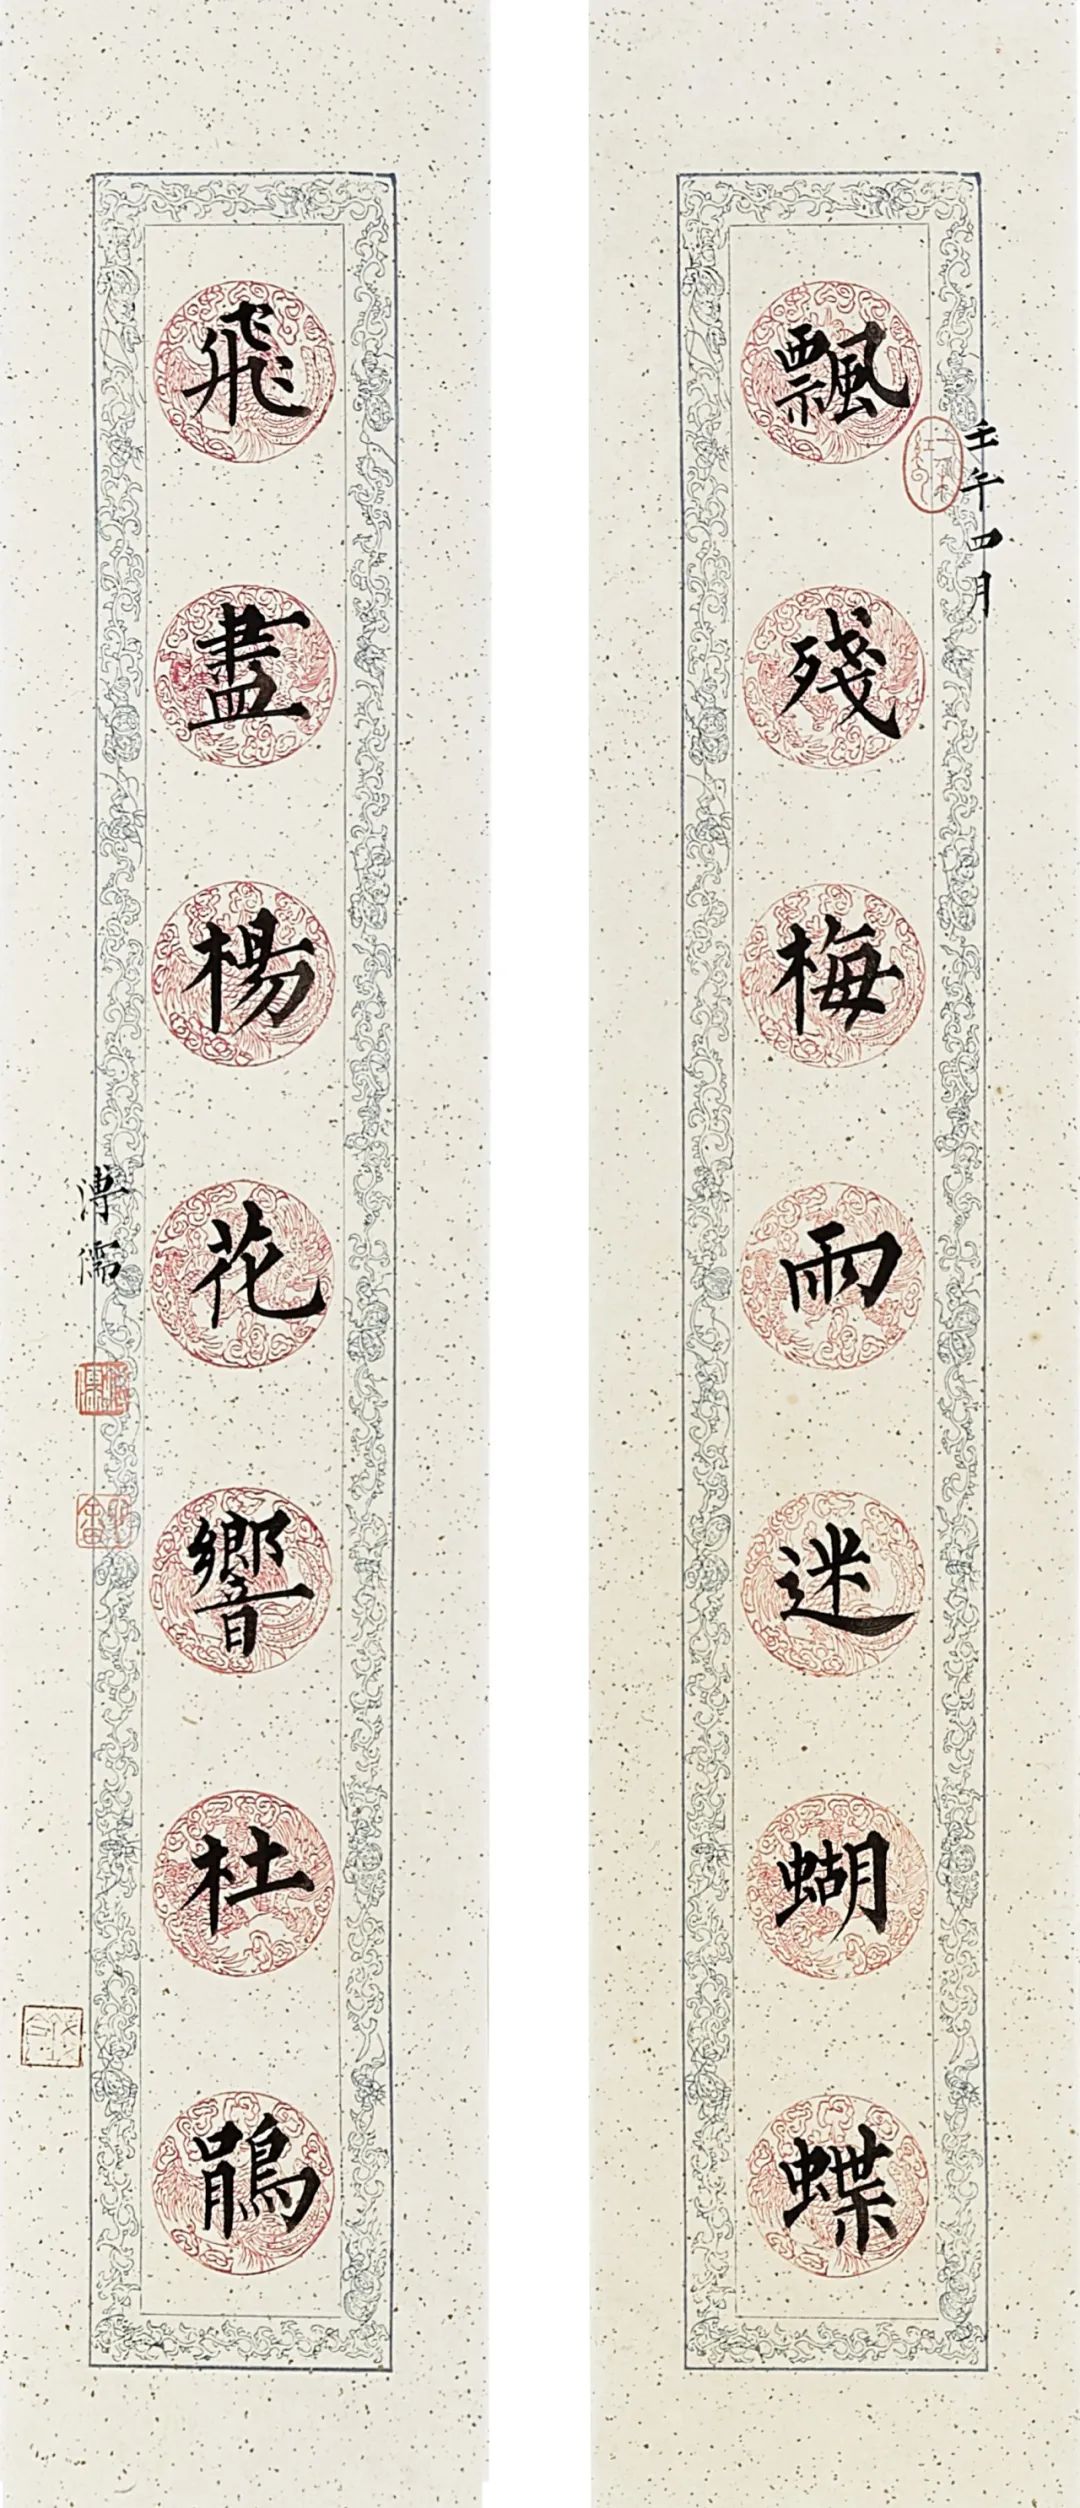 壬午四月
飄殘梅雨迷蝴蝶
飛盡楊花響杜鵑
溥儒